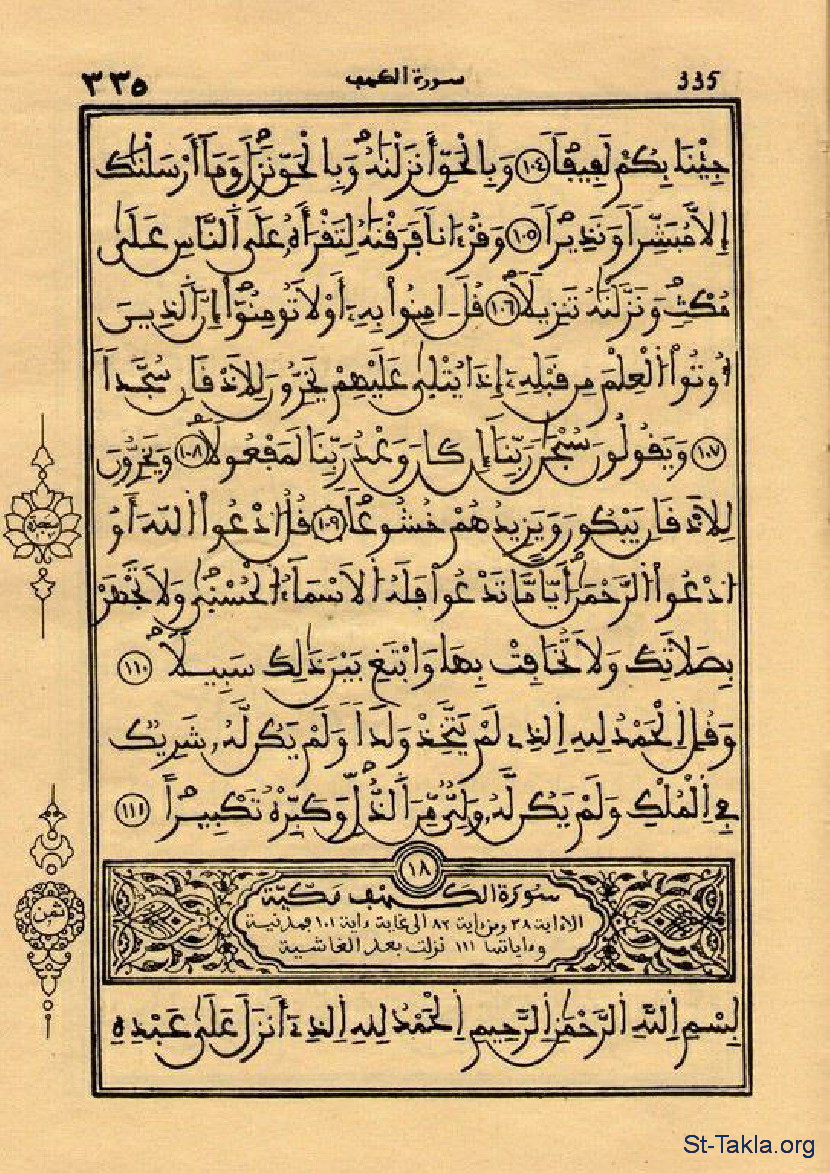 335 سورة الكهف ٣٣٥
جِئْنَا بِكُمْ لَفِيفاً ١٠٤ وَبِالْحَقِّ أَنزَلْنَٰهُ وَبِالْحَقِّ نَزَلَ وَمَا أَرْسَلْنَٰكَ
إِلاَّ مُبَشِّراً وَنَذِيراً ١٠٥ وَقُرْءَاناً فَرَقْنَٰهُ لِتَقْرَأَهُ عَلَى النَّاسِ عَلَىٰ
مُكْثٍ وَنَزَّلْنَٰهُ تَنزِيلاً ١٠٦ قُلَ ـامِنُواْ بِهِۦ أَوْ لاَ تُومِنُواْ إِنَّ الذِينَ
أُوتُواْ الْعِلْمَ مِن قَبْلِهِۦ إِذَا يُتْلَىٰ عَلَيْهِمْ يَخِرُّونَ لِلَاذْقَانِ سُجَّداً
١٠٧ وَيَقُولُونَ سُبْحَٰنَ رَبِّنَا إِن كَانَ وَعْدُ رَبِّنَا لَمَفْعُولاً ١٠٨ وَيَخِرُّونَ
لِلَاذْقَانِ يَبْكُونَ وَيَزِيدُهُمْ خُشُوعاً ١٠٩ قُلُ ادْعُواْ اللهَ أَوُ
ادْعُواْ الرَّحْمَٰنَ أَيّاً مَّا تَدْعُواْ فَلَهُ الَاسْمَاءُ الْحُسْنَىٰ وَلاَ تَجْهَرْ
بِصَلاَتِكَ وَلاَ تُخَافِتْ بِهَا وَابْتَغِ بَيْنَ ذَٰلِكَ سَبِيلاً ١١٠
وَقُلِ الْحَمْدُ لِلهِ الذِے لَمْ يَتَّخِذْ وَلَداً وَلَمْ يَكُن لَّهُۥ شَرِيكٌ
فِے الْمُلْكِ وَلَمْ يَكُن لَّهُۥ وَلِيٌّ مِّنَ الذُّلِّ وَكَبِّرْهُ تَكْبِيراً ١١١
سجدة
١٨
سورة الكهف مكية
الا ءاية ٣٨ ومن ءاية ٨٣ الى غاية ءاية ١٠١ فمدنية
وءاياتها ١١١ نزلت بعد الغاشية
ثمن
بِسْمِ اللهِ الرَّحْمَٰنِ الرَّحِيمِ الْحَمْدُ لِلهِ الذِے أَنزَلَ عَلَىٰ عَبْدِهِ
St-Takla.org